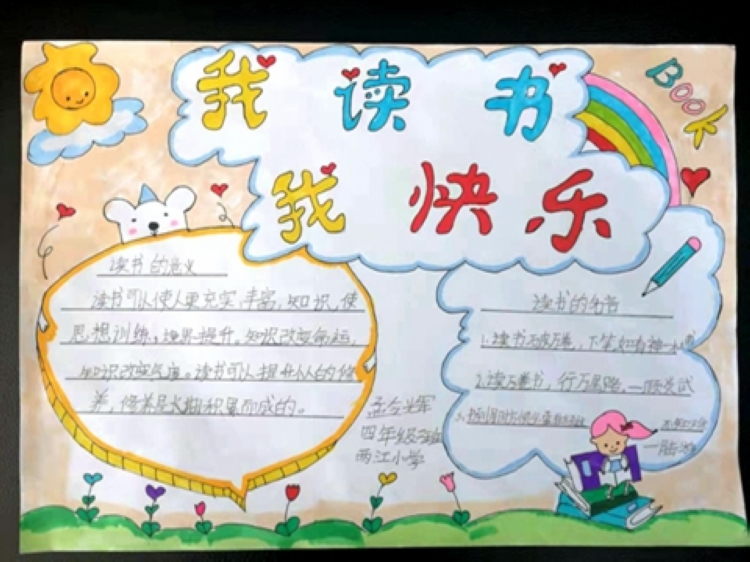 我读书
Book
我快乐
读书的意义
读书可以使人更充实、丰富,知识,使
思想训练,境界提升。知识改变命运,
知识改变气度。读书可以提升人的修
养,修养是长期积累而成的。
四年级
两江小学
读书的名言
1.读书破万卷,下笔如有神
2.读万卷书,行万里路。